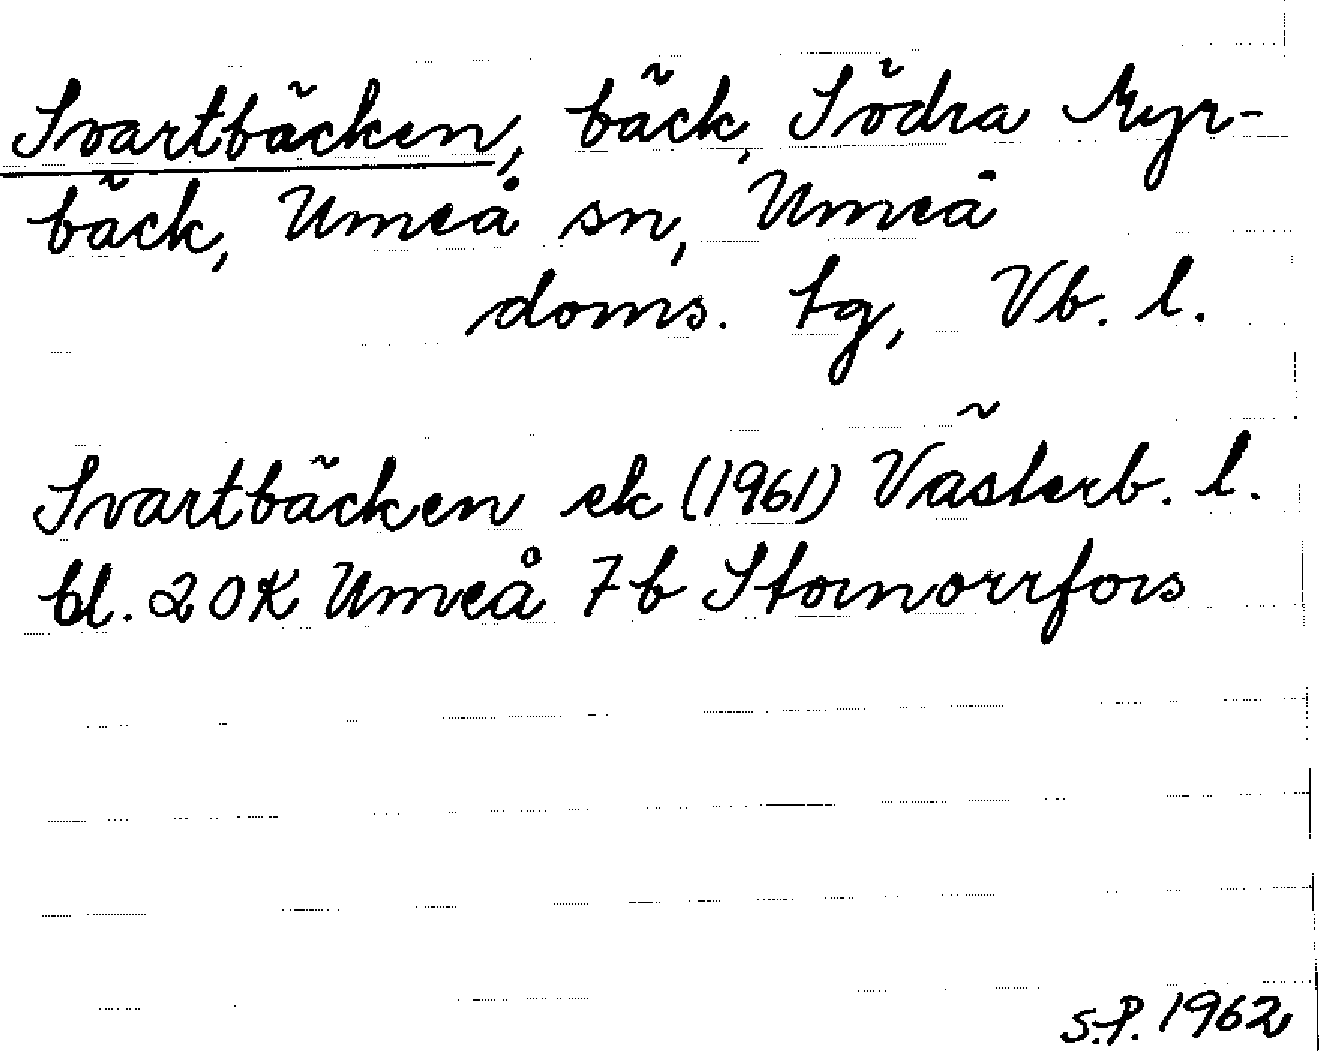 Svartbäcken, bäck, Södra Myr-
bäck, Umeå sn, Umeå
doms. tg, Vb. l.
Svartbäcken ek (1961) Västerb. l.
bl. 20K Umeå 7b Stornorrfors
S.P. 1962